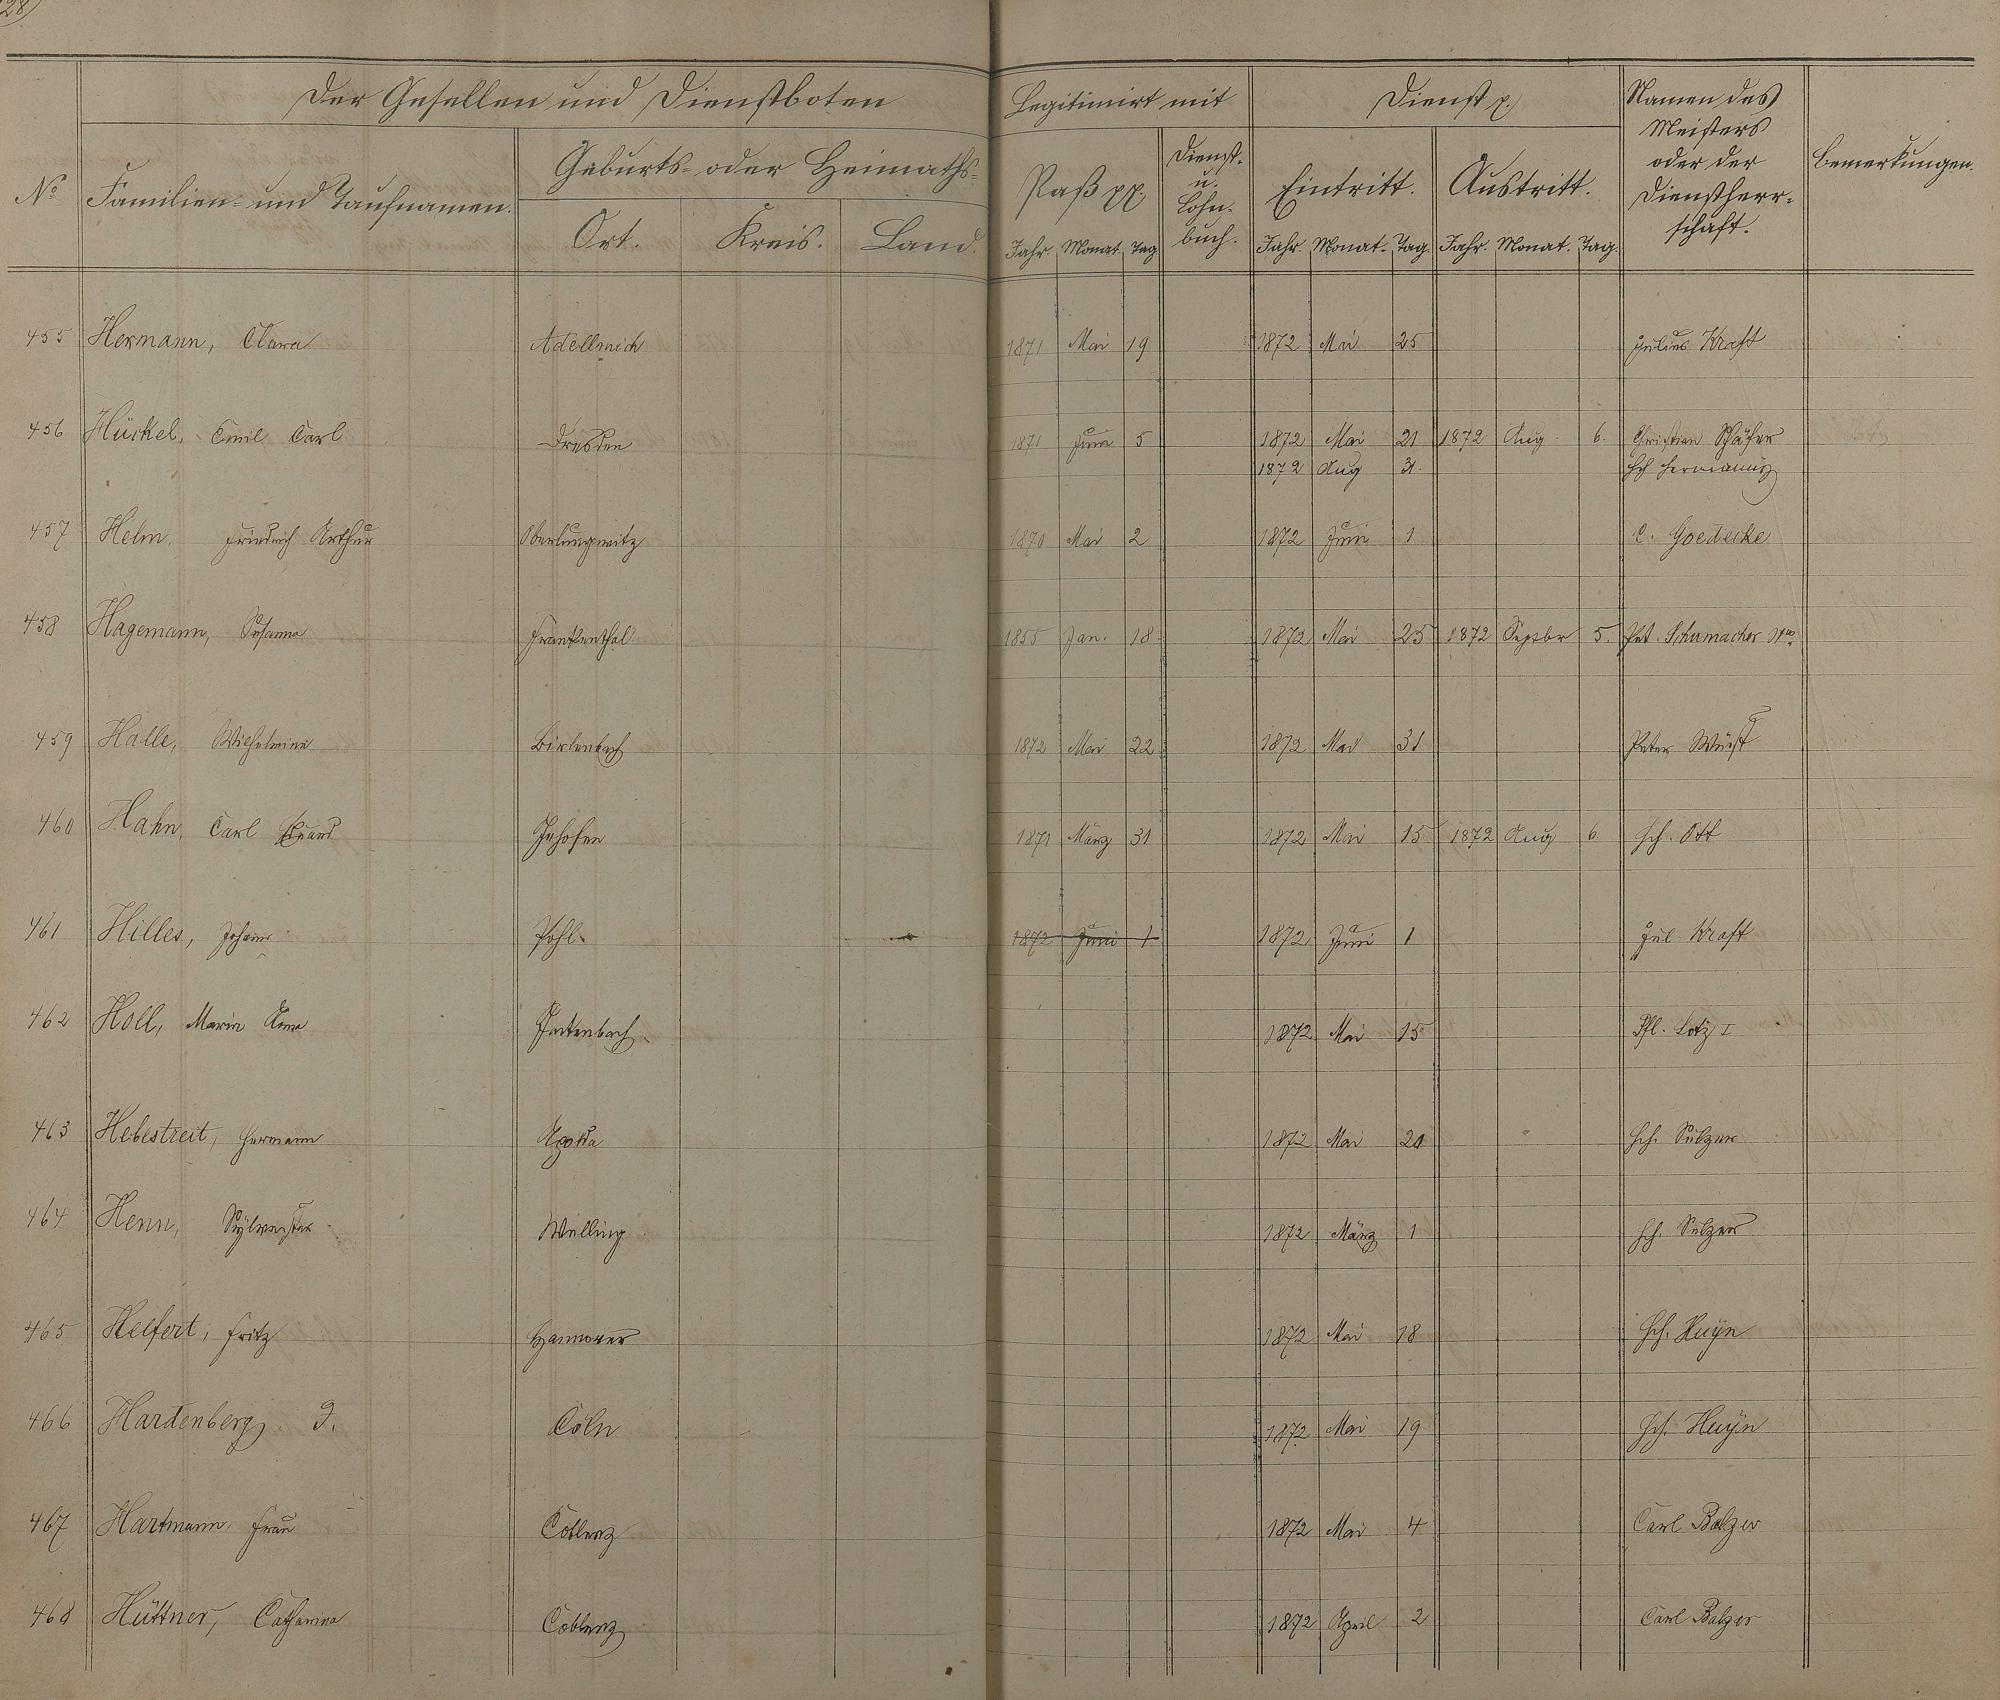 28)
Der Gesellen und Dienstboten Legitimirt mit Dienst p. Namen des Meisters oder der Dienstherr-schaft. Bemerkungen.
No Familien- und Taufnamen. Geburts- oder Heimaths- Paß pp. Dienst- u. Lohn-buch. Eintritt. Austritt.
Ort. Kreis. Land. Jahr. Monat. Tag. Jahr. Monat. Tag. Jahr. Monat. Tag.
455 Hermann, Clara 1871 Mai 19 1872 Mai 25 Julius Kraft
456 Hückel, Emil Carl Dresden 1871 Juni 5 1872 Mai 21 1872 Aug. 6. Christian Schäfer
1872 Aug 31.
457 Helm, Friedrich Arthur Oberlungwitz 1870 Mai 2 1872 Juni 1 C. Goedecke
458 Hagemann, Susanna Frankenthal 1855 Jan. 18 1872 Mai 25 1872 Septbr 5. Pet. Schumacher Wwe
459 Halle, Wilhelmine Birlenbach 1872 Mai 22 1872 Mai 31 Peter Wüst
460 Hahn, Carl Eduard 1871 März 31 1872 Mai 15 1872 Aug 6 Hch. Ott
461 Hilles, Johann Pohl. 1872 Juni 1 1872 Juni 1 Jul Kraft
462 Holl, Maria Anna 1872 Mai 15 Phl. Lotz I
463 Hebestreit, Hermann Apolda 1872 Mai 20 Hch. Sulzer
464 Henn, Sylvester Welling 1872 März 1 Hch. Sulzer
465 Helfert, Fritz Hannover 1872 Mai 18 Hch. Huyn
466 Hardenberg. J. Cöln 1872 Mai 19 Hch. Huyn
467 Hartmann, Frau Coblenz 1872 Mai 4 Carl Balzer
468 Hüttner, Catharina Coblenz 1872 April 2 Carl Balzer